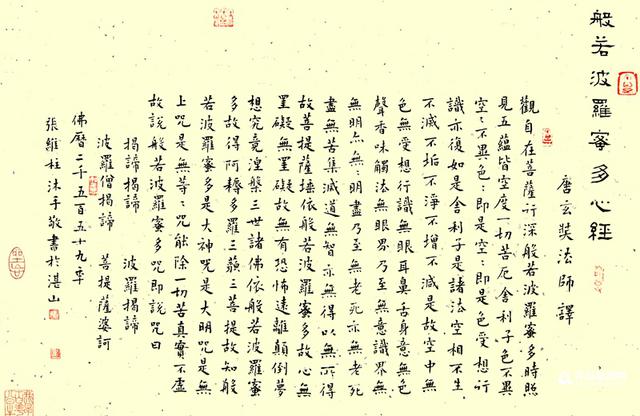 般若波羅蜜多心經
唐玄奘法師譯
觀自在菩薩行深般若波羅蜜多時照
見五蘊皆空度一切苦厄舍利子色不異
空:不異色:即是空:即是色受想行
識亦復如是舍利子是諸法空相不生
不滅不垢不淨不增不減是故空中無
色無受想行識無眼耳鼻舌身意無色
聲香味觸法無眼界乃至無意識界無
無明亦無:明盡乃至無老死亦無老死
盡無苦集滅道無智亦無得以無所得
故菩提薩埵依般若波羅蜜多故心無
罣礙無罣礙故無有恐怖遠離顛倒夢
想究竟涅槃三世諸佛依般若波羅蜜
多故得阿耨多羅三藐三菩提故知般
若波羅蜜多是大神咒是大明咒是無
上咒是無等:咒能除一切苦真實不虛
故說般若波羅蜜多咒即說咒曰
揭諦揭諦 波羅揭諦
波羅僧揭諦 菩提薩婆訶
佛曆二千五百五十九年
張維柱沐手敬書於湛山